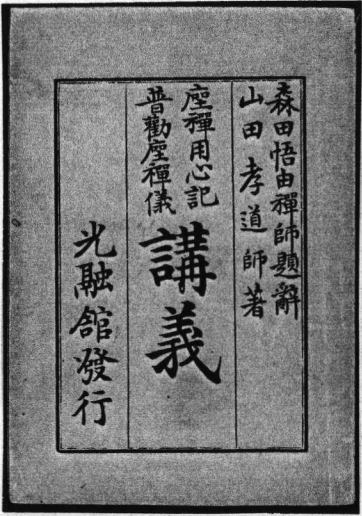 森田悟由禪師題辭
山田孝道師著
座禪用心記
普勸座禪儀
講義
光融舘發行